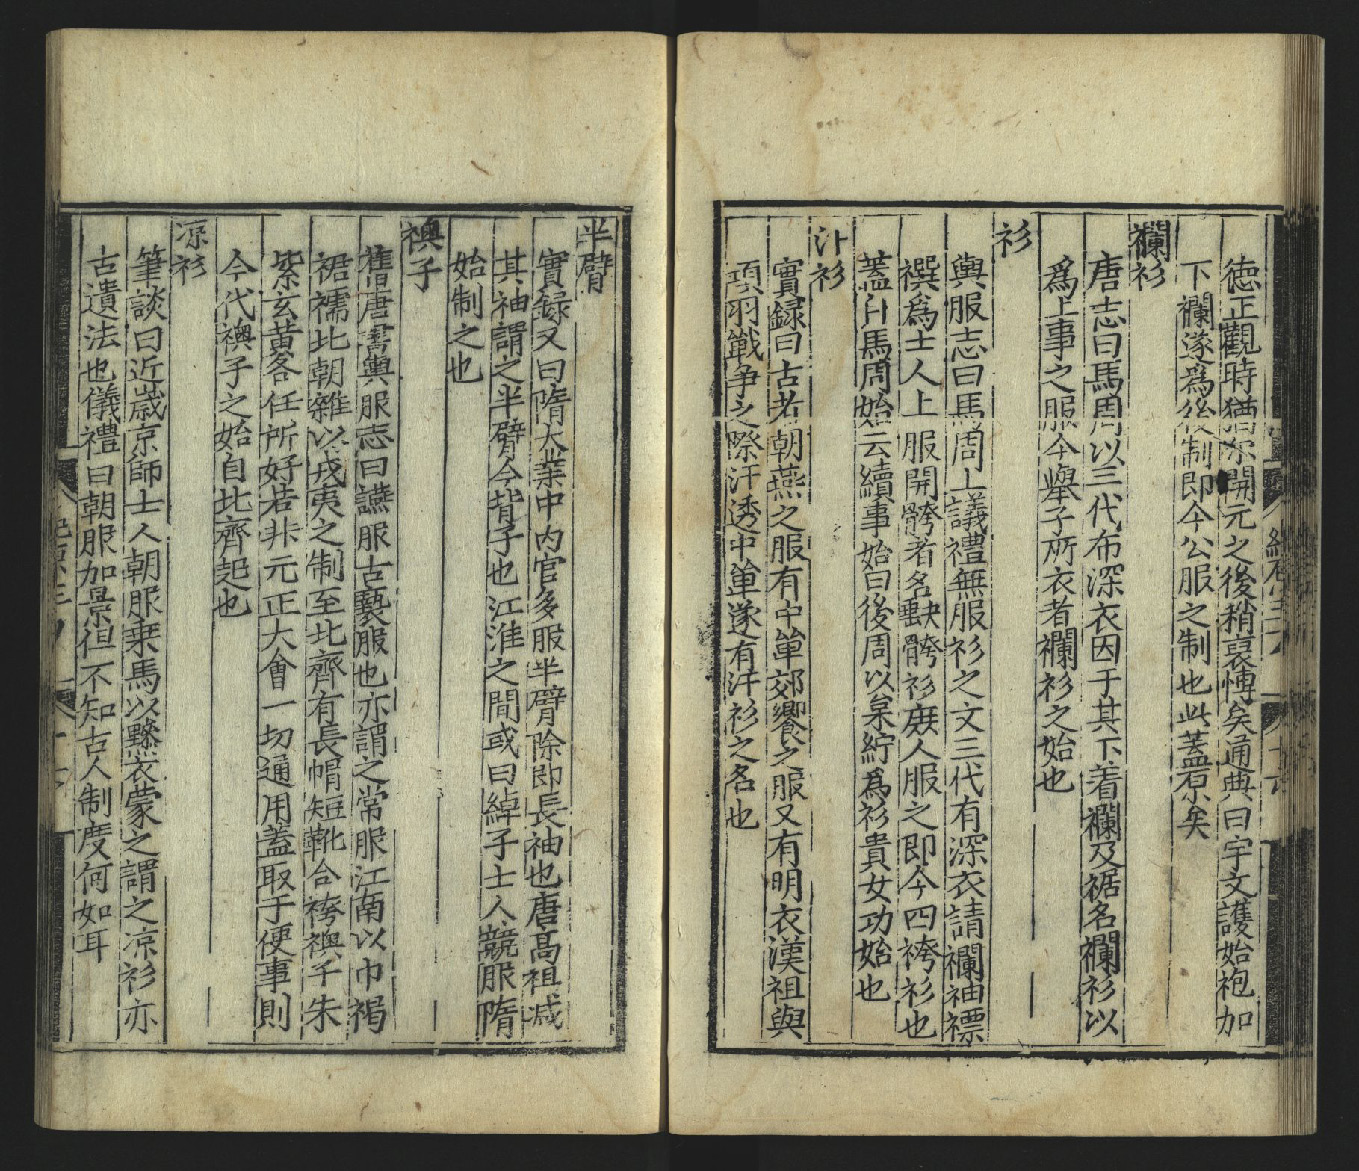 德正觀時猶未開元之後稍裒愽矣通典曰宇文護始袍加
下襴遂爲後制即今公服之制也此蓋原矣
襴衫
唐志曰馬周以三代布深衣因于其下着襴及裾名襴衫以
爲上事之服今舉子所衣者襴衫之始也
衫
輿服志曰馬周上議禮無服衫之文三代有深衣請襴袖褾
襈爲士人上服開骻者名䦼骻衫庻人服之即今四袴衫也
蓋自馬周始云續事始曰後周以枲紵爲衫貴女功始也
汗衫
實録曰古者朝燕之服有中單郊饗之服又有明衣漢祖與
項羽戰争之際汗透中單遂有汗衫之名也
半臂
實録又曰隋大業中内官多服半臂除即長袖也唐髙祖减
其袖謂之半臂今背子也江淮之間或曰綽子士人競服隋
始制之也
襖子
舊唐書輿服志曰讌服古褻服也亦謂之常服江南以巾褐
裙襦北朝雜以戎夷之制至北齊有長帽短靴合袴襖子朱
紫玄黄各任所好若非元正大會一切通用蓋取于便事則
今代襖子之始自北齊起也
凉衫
筆談曰近歳京師士人朝服乗馬以黲衣蒙之謂之凉衫亦
古遺法也儀禮曰朝服加景但不知古人制度何如耳